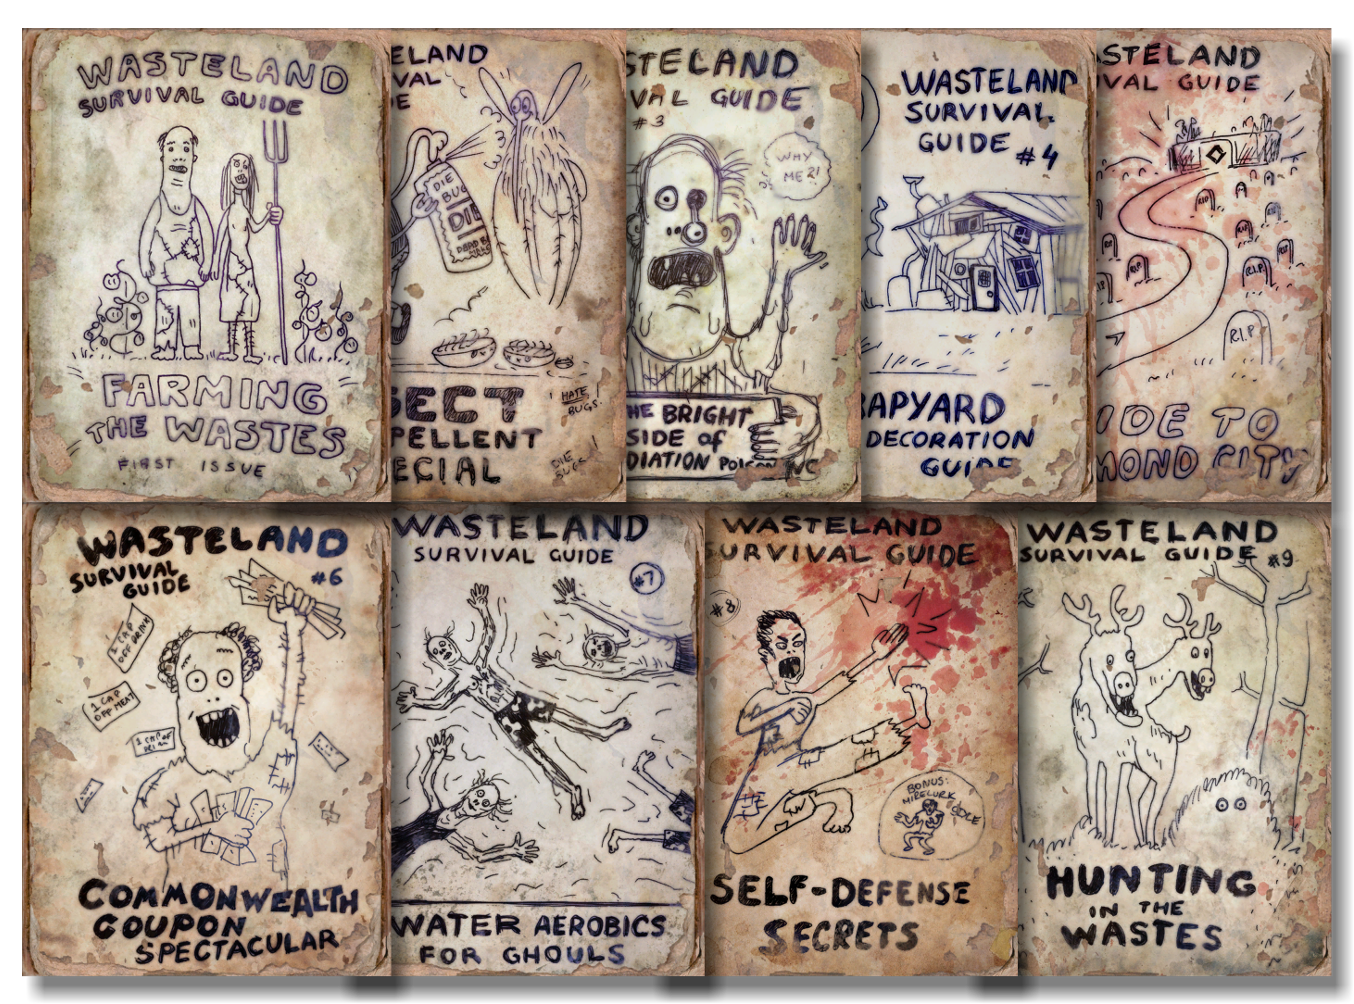 WASTELAND
SURVIVAL GUIDE
FARMING
THE WASTES
FIRST ISSUE
ELAND
VAL
E
DIE
BUG
DIE
DEAD B
SECT
PELLENT
ECIAL
HATE
BUGS!
DIE
BUGS
STELAND
VAL GUIDE
#3
WHY
ME?!
HE BRIGHT
SIDE OF
DIATION POISONING
WASTELAND
SURVIVAL
GUIDE #4
RAPYARD
DECORATION
GUIDE
STELAND
VAL GUIDE
RIP
RIP
R.I.P
R.I.P
IDE TO
MOND CITY
WASTELAND
SURVIVAL
GUIDE
#6
1 CAP
OFF DRINK
1 CAP
OFF MEAT
1 CAP OF
COMMONWEALTH
COUPON
SPECTACULAR
WASTELAND
SURVIVAL GUIDE
#7
WATER AEROBICS
FOR GHOULS
WASTELAND
SURVIVAL GUIDE
#8
BONUS:
MIRELURK
SELF-DEFENSE
SECRETS
WASTELAND
SURVIVAL GUIDE #9
HUNTING
IN THE
WASTES